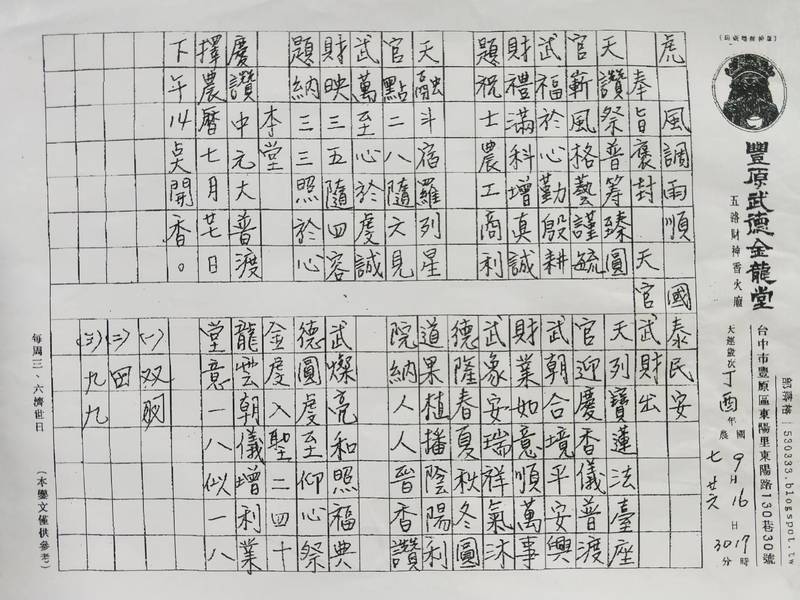 豐原武德金龍堂
五路財神香火廟
部落格 530333.blogspot.tw
台中市豐原區東陽里東陽路130巷30號
天運歲次丁酉年 國9月16日17時30分
農七廿六
虎 風調雨順 國泰民安
奉旨褒封 天官武財出
天讚祭普等臻圓
官蘄風格藝謹毓
武福於心勤殷耕
財禮滿科增真誠
題祝士農工商利
天融斗宿羅列星
官點二八隨六見
武萬至心於虔誠
財映三五隨四容
題納三三照於心
本堂
慶讚中元大普渡
擇農曆七月廿七日
下午14点開香。
天列寶蓮法臺座
官迎慶香儀普渡
武朝合境平安興
財業如意順萬事
武象安瑞祥氣沐
德隆春夏秋冬圓
道果植播陰陽利
院納人人晉香讚
武燦亮和照福典
德圓虔至仰心祭
金虔入聖二四十
龍雲朝儀增利業
堂意一八似一八
(一)双
(二)四
(三)九九
每周三、六濟世日
(本鸞文僅供參考)